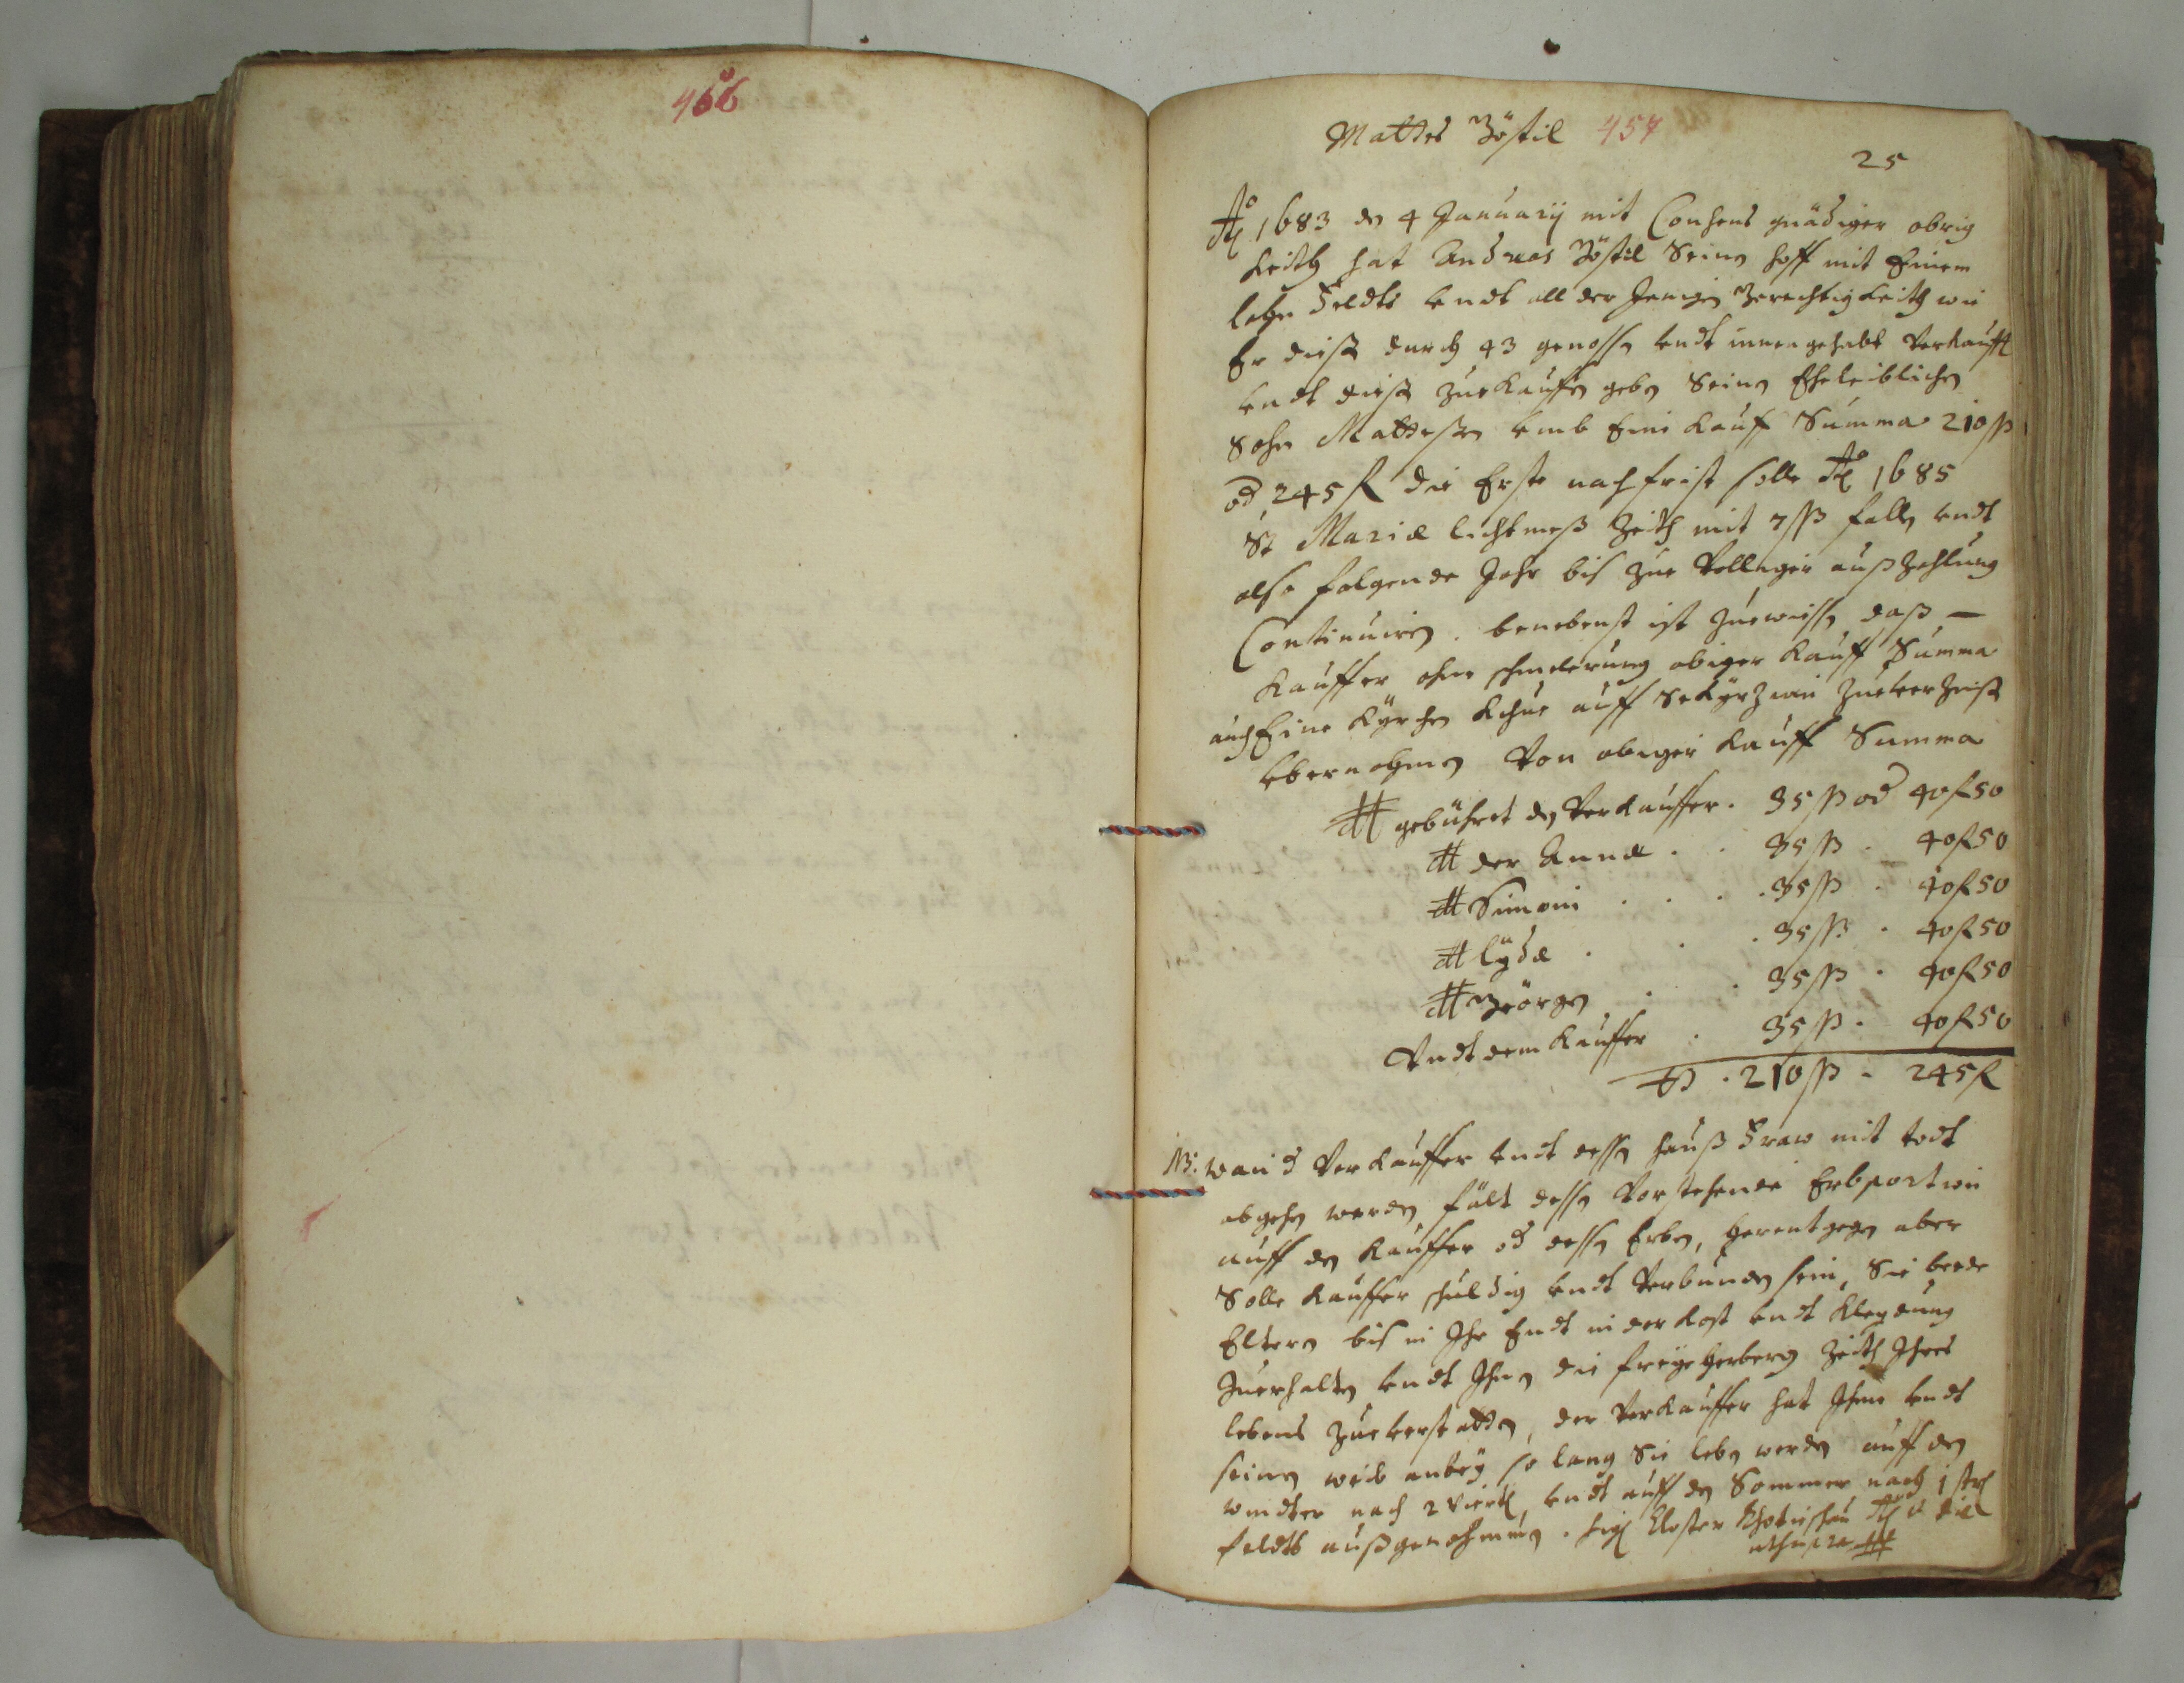 466
Mattes Böstil 457
25
Aō 1683 den 4 Januarij mit Consens gnädiger obrig
Keith hat Andreas Böstil Seinen hoff mit Einem
lehn Feldts undt all der Jenigen Gerechtigkeith wie
Er diese durch 43 genossen undt innen gehabt Verkaufft
undt diese zue Kauffen geben Seinen Eheleiblichen
Sohn Mattessen umb Eine Kauf Summa 210 ßß
od 245 fl die Erste nachfrist solle Aō 1685
St Mariæ lichtmeß Zeith mit 7 ßß fallen undt
also folgende Jahr bis zue Völliger außzahlung
Continuiren. benebenst ist zuewissen daß —
Kauffer ohne schmelerung obiger Kauff Summa
auch Eine Kyrchen Kehue auff zueverzeiß
übernohmen Von obiger Kauff Summa
gebühret den Verkauffer. 35 ßß od 40 fl 50
der Annæ . . 35 ßß . 40 fl 50
Simoni . . . 35 ßß . 40 fl 50
lydæ . . . 35 ßß . 40 fl 50
Geörgen . . 35 ßß . 40 fl 50
Undt dem Kauffer . 35 ßß . 40 fl 50
. 210 ßß . 245 fl
NB: wan d Verkauffer undt dessen hauß Fraw mit todt
abgehen werden fält dessen Vorstehende Erbportion
auff den Kauffer od dessen Erben, herentgegen aber
Solle Kauffer schuldig undt Verbunden sein, Sie beede
Eltern bis in Ihr Endt in der Kost undt Kleydung
Zuerhalten undt Ihnen die freye herberg Zeith Ihres
lebens zueverstatten, der Verkauffer hat Ihme undt
seinen weib anbey so lang Sie leben werden auff den
windter nach 2 Viertl, undt auff den Sommer nach 1 str
feldts außgenohmmen. Sigl Closter Chotieschau Aō & die
ut supra